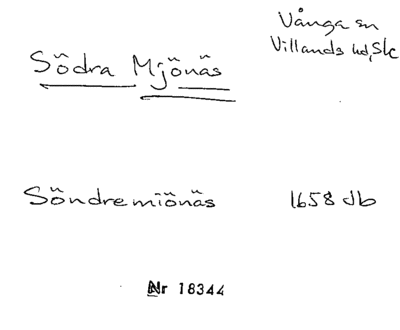 Vånga sn
Villands hd, Sk
Södra Mjönäs
Söndremiönäs 1658 Jb
Nr 18344